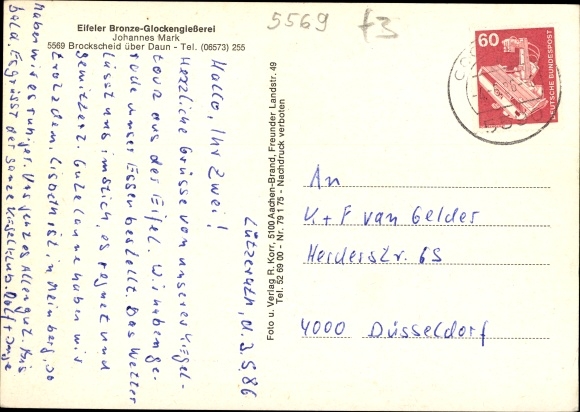 Eifeler Bronze-Glockengießerei
Johannes Mark
5569 Brockscheid über Daun - Tel. (06573) 255
5569
f3
60
DEUTSCHE BUNDESPOST
Foto u. Verlag R. Korr, 5100 Aachen-Brand, Freunder Landstr. 49
Tel. 52 69 00 - Nr. 79 1 75 - Nachdruck verboten
Lützerath, d. 3.5.86
Hallo, Ihr Zwei!
Herzliche Grüsse von unserer Kegel-
tour aus der Eifel. Wir haben ge-
rade unser Essen bestellt. Das Wetter
lässt uns im Stich, es regnet und
gewittert. Gute Laune haben wir
trotzdem. Lisbeth ist in Meinberg, so
haben wir es ruhiger. Uns geht es allen gut. Bis
bald. Es grüsst der ganze Kegelclub.
An
K + F van Gelder
Herderstr. 65
4000 Düsseldorf